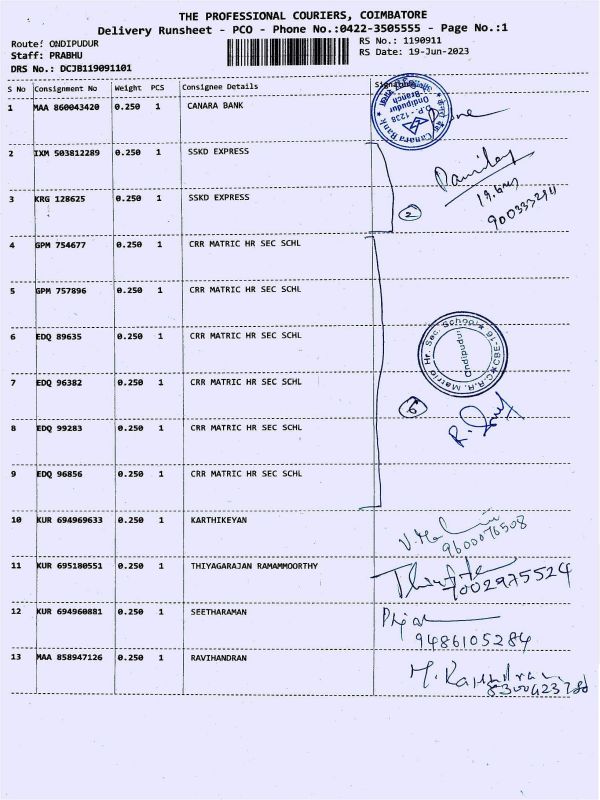 THE PROFESSIONAL COURIERS, COIMBATORE
Delivery Runsheet - PCO - Phone No.:0422-3505555 - Page No.:1
Route: ONDIPUDUR
RS No.: 1190911
Staff: PRABHU
RS Date: 19-Jun-2023
DRS No.: DCJB119091101
S No Consignment No Weight PCS Consignee Details Signature
1 MAA 860043420 0.250 1 CANARA BANK
Canara Bank
D.P. 1238
Ondipudur
Branch
2 IXM 503812289 0.250 1 SSKD EXPRESS
3 KRG 128625 0.250 1 SSKD EXPRESS
2
4 GPM 754677 0.250 1 CRR MATRIC HR SEC SCHL
5 GPM 757896 0.250 1 CRR MATRIC HR SEC SCHL
6 EDQ 89635 0.250 1 CRR MATRIC HR SEC SCHL
C.R.R. Matric Hr. Sec. School CBE-16
Ondipudur
7 EDQ 96382 0.250 1 CRR MATRIC HR SEC SCHL
6
8 EDQ 99283 0.250 1 CRR MATRIC HR SEC SCHL
9 EDQ 96856 0.250 1 CRR MATRIC HR SEC SCHL
10 KUR 694969633 0.250 1 KARTHIKEYAN
9600076508
11 KUR 695180551 0.250 1 THIYAGARAJAN RAMAMMOORTHY
7002975524
12 KUR 694960881 0.250 1 SEETHARAMAN
9486105284
13 MAA 858947126 0.250 1 RAVIHANDRAN